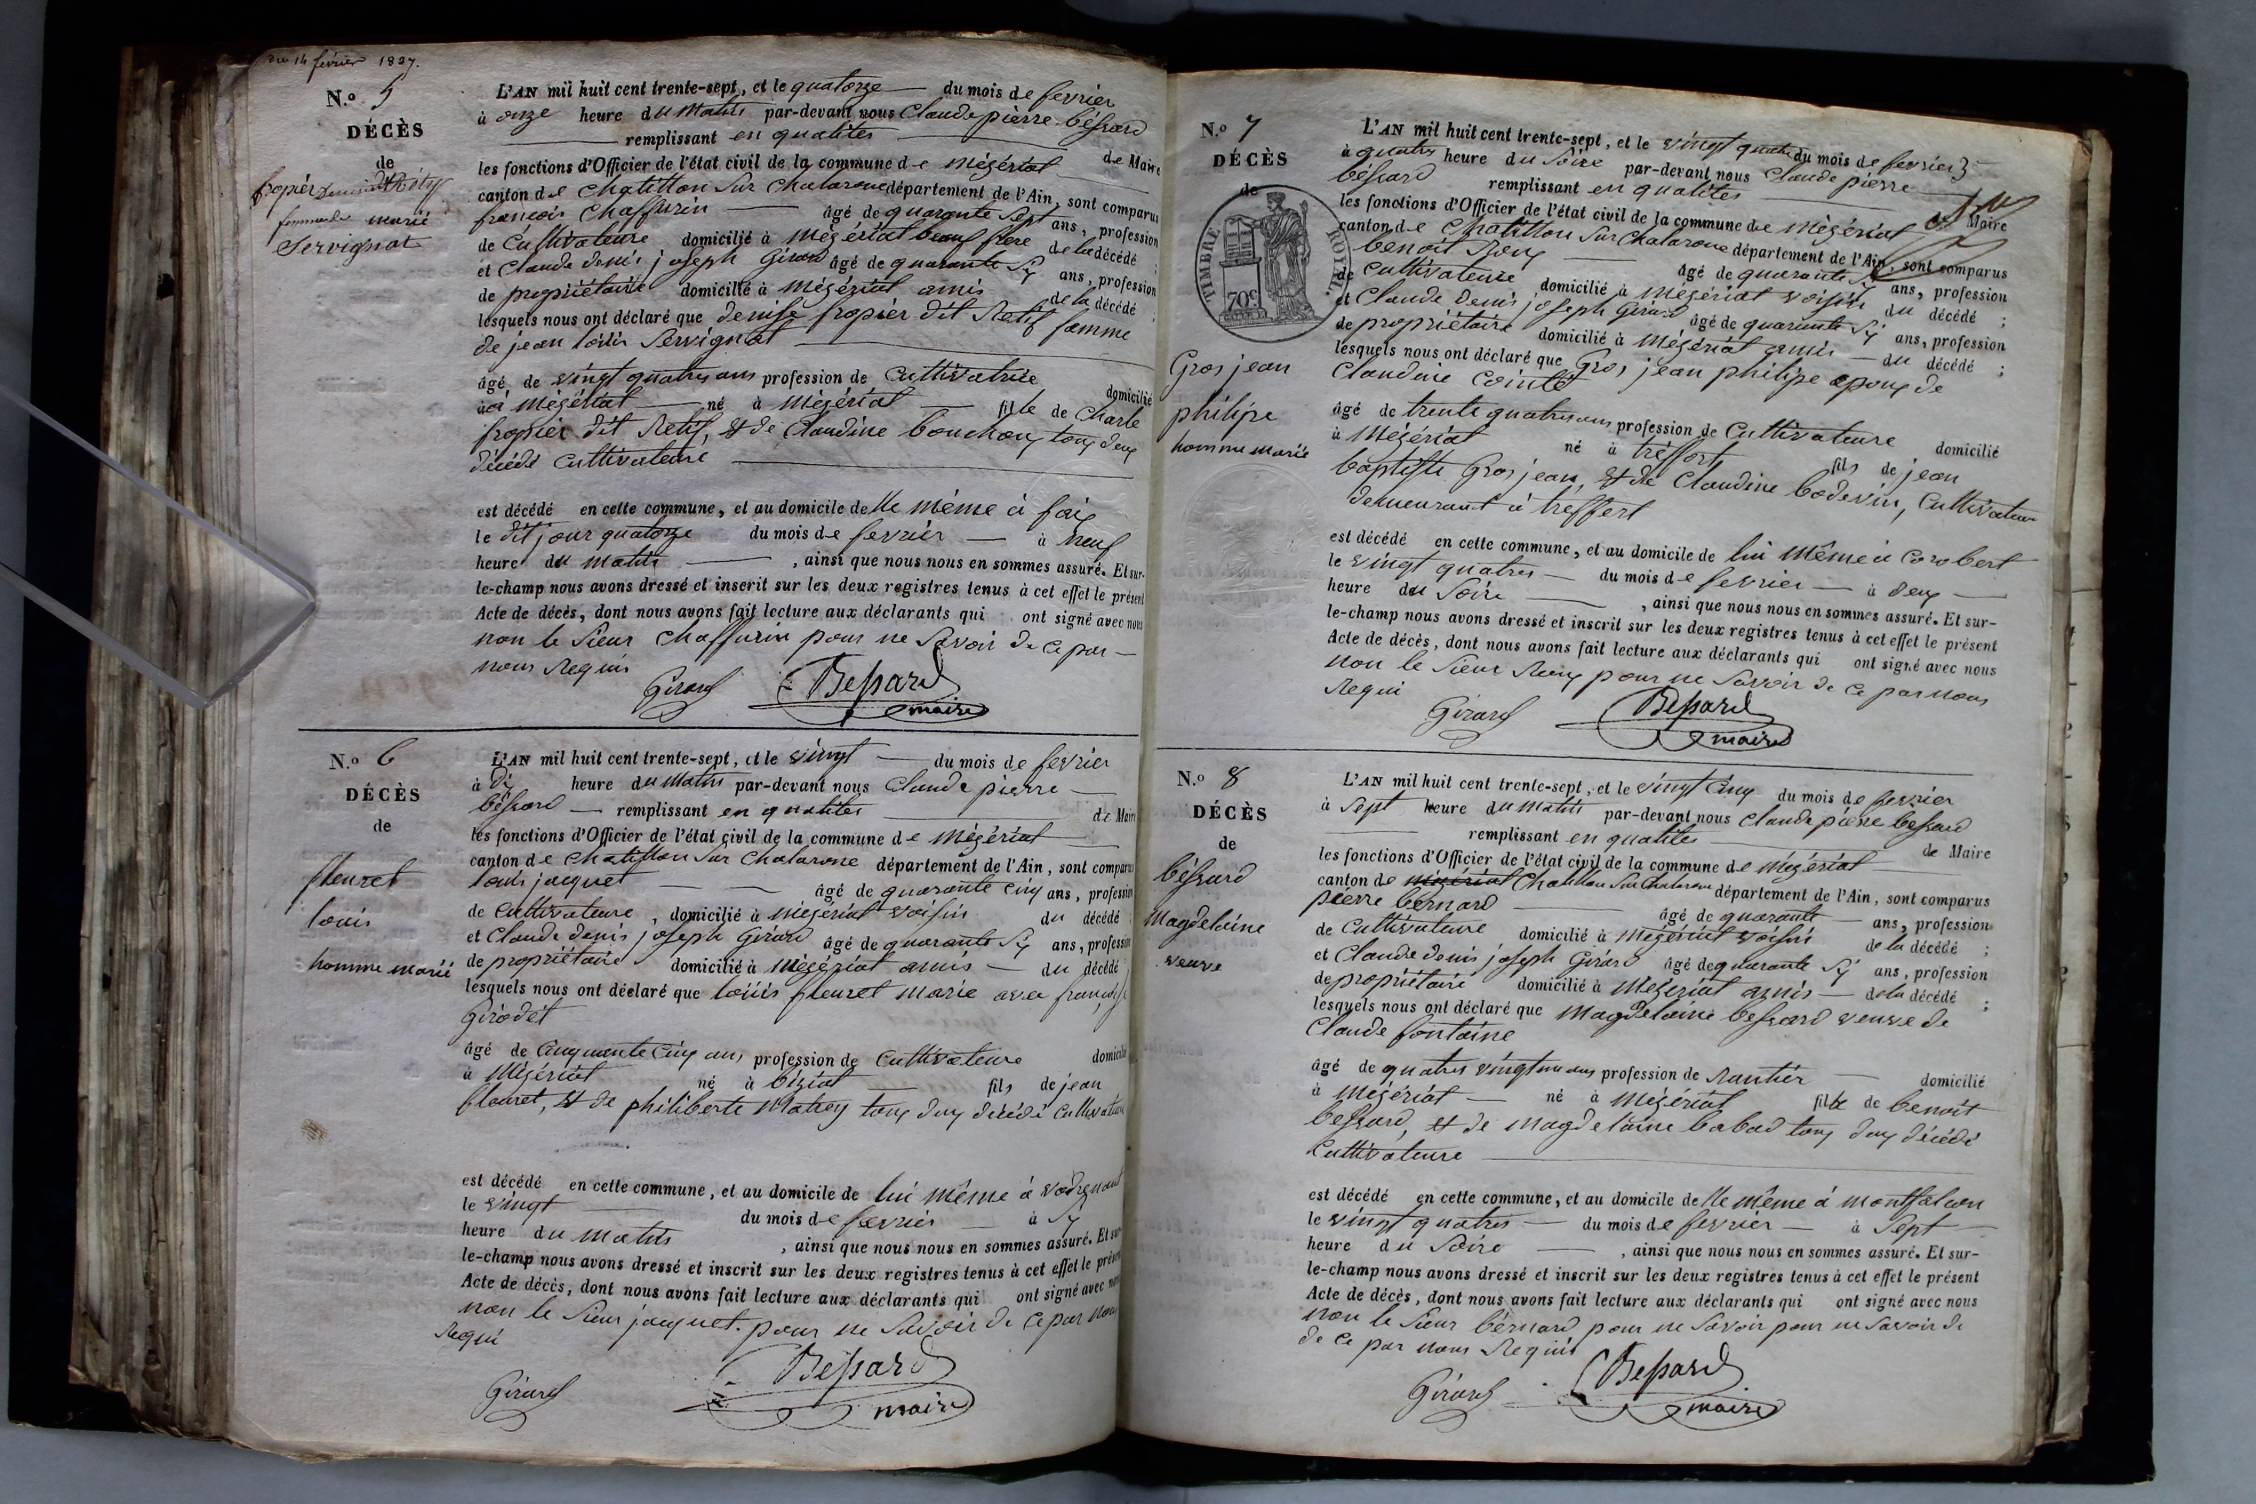 du 14 février 1837.
N.o 5
DÉCÈS
de
fropier denise dit Rétif
femme marié
Servignat
L'AN mil huit cent trente-sept, et le quatorze du mois de fevrier
à onze heure du matin par-devant nous Claude pierre béssard
remplissant en qualités de Maire
les fonctions d'Officier de l'état civil de la commune de mégériat
canton de Chatillon sur Chalarone département de l'Ain, sont comparus
francois Chaffurin âgé de quarante sept ans, profession
de Cultivateure domicilié à mégériat beaux frere de la décédé ;
et Claude denis joseph Girard âgé de quarante six ans, profession
de propriétaire domicilié à mégériat amis de la décédé ;
lesquels nous ont déclaré que denise fropier dit Retif famme
de jean louis Servignat
âgé de vingt quatres ans profession de Cultivatrice domicilié
à mégériat né à mégériat fille de Charle
fropier dit Retif, et de Claudine bouchoux tous deux
décédé Cultivateure
est décédé en cette commune, et au domicile de lle même à faix
le dit jour quatorze du mois de fevrier à neuf
heure du matin , ainsi que nous nous en sommes assuré. Et sur-
le-champ nous avons dressé et inscrit sur les deux registres tenus à cet effet le présent
Acte de décès, dont nous avons fait lecture aux déclarants qui ont signé avec nous
non le sieur Chaffurin pour ne savoir de ce par
nous Requis
Girard Bessard
maire
N.o 6
DÉCÈS
de
fleuret
louis
homme marié
L'AN mil huit cent trente-sept, et le vingt du mois de fevrier
à dix heure du matin par-devant nous Claude pierre
béssard remplissant en qualités de Maire
les fonctions d'Officier de l'état civil de la commune de mégériat
canton de Chatillon sur Chalarone département de l'Ain, sont comparus
louis jacquet âgé de quarante cinq ans, profession
de Cultivateure, domicilié à mégériat voisin du décédé
et Claude denis joseph Girard âgé de quarante six ans, profession
de propriétaire domicilié à mégériat amis du décédé
lesquels nous ont déclaré que louis fleuret marie avec françoise
Girodet
âgé de Cinquante Cinq ans profession de Cultivateure domicilié
à Mégériat né à biziat fils de jean
fleuret, et de philiberte Matrey tous deux décédé cultivateure
est décédé en cette commune, et au domicile de lui même à vadrenant
le vingt du mois de fevrier à six
heure du matin , ainsi que nous nous en sommes assuré. Et sur-
le-champ nous avons dressé et inscrit sur les deux registres tenus à cet effet le présent
Acte de décès, dont nous avons fait lecture aux déclarants qui ont signé avec nous
non le sieur jacquet pour ne savoir de ce par nous
Requi
Girard Bessard
maire
N.o 7
DÉCÈS
de
TIMBRE ROYAL.
70c
Gros jean
philipe
homme marié
L'AN mil huit cent trente-sept, et le vingt quatre du mois de fevrier
à quatres heure du Soire par-devant nous Claude pierre
béssard remplissant en qualités de Maire
les fonctions d'Officier de l'état civil de la commune de mégériat
canton de Chatillon sur Chalarone département de l'Ain, sont comparus
benoit Roux âgé de quarante six ans, profession
de Cultivateure domicilié à mégériat voisin du décédé ;
et Claude denis joseph Girard âgé de quarante six ans, profession
de propriétaire domicilié à mégériat amis du décédé ;
lesquels nous ont déclaré que Gros jean philipe epoux de
Claudine Cointe
âgé de trente quatres ans profession de Cultivateure domicilié
à Mégériat né à tréffort fils de jean
baptiste Gros jean, et de Claudine bodevin, Cultivateure
demeurant à treffort
est décédé en cette commune, et au domicile de lui même à Corobert
le vingt quatres du mois de fevrier à deux
heure du Soire , ainsi que nous nous en sommes assuré. Et sur-
le-champ nous avons dressé et inscrit sur les deux registres tenus à cet effet le présent
Acte de décès, dont nous avons fait lecture aux déclarants qui ont signé avec nous
non le Sieur Roux pour ne savoir de ce par nous
Requi
Girard Bessard
maire
N.o 8
DÉCÈS
de
béssard
Magdelaine
veuve
L'AN mil huit cent trente-sept, et le vingt cinq du mois de fevrier
à Sept heure du matin par-devant nous Claude pierre bessard
remplissant en qualités de Maire
les fonctions d'Officier de l'état civil de la commune de mégériat
canton de mégériat Chatillon sur Chalarone département de l'Ain, sont comparus
pierre bernard âgé de quarante ans, profession
de Cultivateure domicilié à mégériat voisin de la décédé ;
et Claude denis joseph Girard âgé de quarante six ans, profession
de propriétaire domicilié à mégériat amis de la décédé ;
lesquels nous ont déclaré que Magdelaine bessard veuve de
Claude fontaine
âgé de quatres vingt un ans profession de Rantier domicilié
à mégériat né à mégériat fille de benoit
bessard, et de magdelaine babad tous deux décédé
Cultivateure
est décédé en cette commune, et au domicile de lle même à montfalcon
le vingt quatres du mois de fevrier à Sept
heure du Soire , ainsi que nous nous en sommes assuré. Et sur-
le-champ nous avons dressé et inscrit sur les deux registres tenus à cet effet le présent
Acte de décès, dont nous avons fait lecture aux déclarants qui ont signé avec nous
non le Sieur bérnard pour ne savoir pour ne savoir de
de ce par nous Requis
Girard Bessard
maire